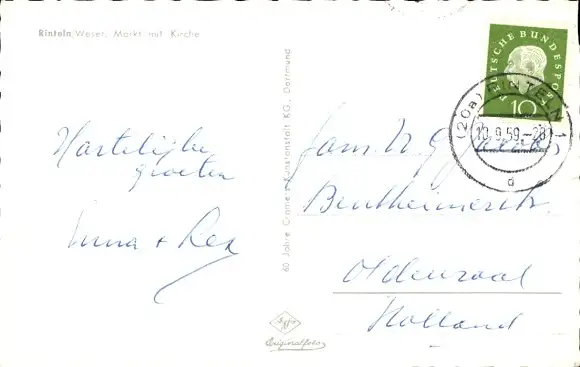 Rinteln/Weser, Markt mit Kirche
Hartelijke
groeten
+ Rex
60 Jahre Cramers Kunstanstalt KG., Dortmund
Agfa
Originalfoto
DEUTSCHE BUNDESPOST
10
(20a) RINTELN 1
10.9.59.-20
d
Fam.
Bentheimerstr.
Oldenzaal
Holland